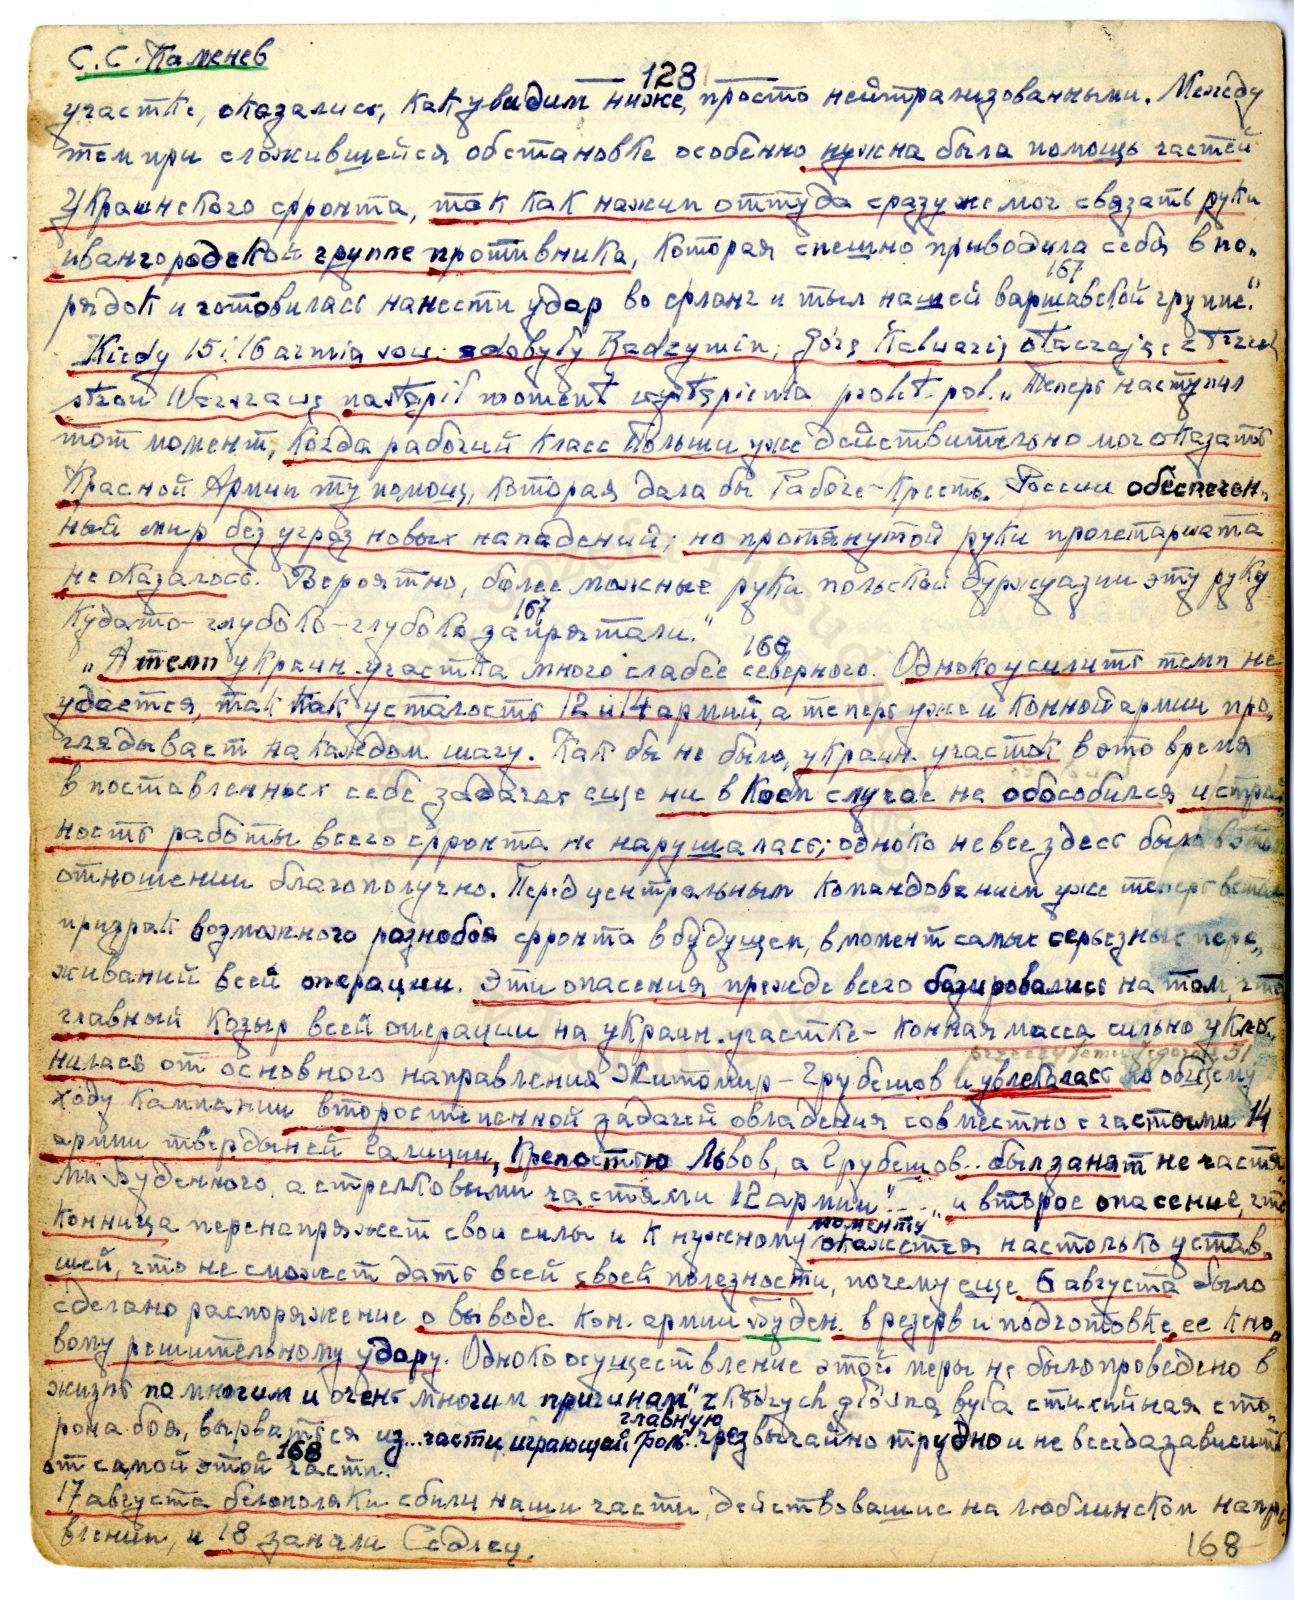 С. С. Каменев
128
участке, оказались, как увидим ниже, просто нейтрализованными. Между
тем при сложившейся обстановке особенно нужна была помощь частей
Украинского фронта, так как нажим оттуда сразу же мог связать руки
ивангородской группе противника, которая спешно приводила себя в по-
рядок и готовилась нанести удар во фланг и тыл нашей варшавской группе."
167
Kiedy 15 i 16 armia sow. zdobyły Radzymin, Górę Kalwarię otaczając z trzech
stron Warszawę nastąpił moment wystąpienia prolet. pol. „Теперь наступил
тот момент, когда рабочий класс Польши уже действительно мог оказать
Красной Армии ту помощ, которая дала бы Рабоче-Кресть. России обеспечен-
ный мир без угроз новых нападений; но протянутой руки пролетариата
не оказалось. Вероятно, более мощные руки польской буржуазии эту руку
куда то-глубоко-глубоко запрятали."
167
„А темп украин. участка много слабее северного. Однако усилить темп не
168
удается, так как усталость 12 и 14 армий, а теперь уже и Конной армии про-
глядывает на каждом шагу. Как бы не было, украин. участок в это время
в поставленных себе задачах еще ни в коем случае не обособился и строй-
ность работы всего фронта не нарушалась; однако не все здесь было в этом
отношении благополучно. Перед центральным командованием уже теперь встал
призрак возможного разнобоя фронта в будущем, в момент самых серьезных пере-
живаний всей операции. Эти опасения прежде всего базировались на том, что
главный козыр всей операции на украин. участке - конная масса сильно укло-
нилась от основного направления Житомир-Грубешов и увлекалась по общему
ходу кампании второстепенной задачей овладения совместно с частями 14
армии твердыней Галиции, крепостью Львов, а Грубешов.. был занят не частя-
ми Буденного, а стрелковыми частями 12 армии" .... „и второе опасение, что
конница перенапряжет свои силы и к нужному моменту окажется настолько устав-
шей, что не сможет дать всей своей полезности, почему еще 6 августа было
сделано распоряжение о выводе Кон. армии Буден. в резерв и подготовке ее к но-
вому решительному удару. Однако осуществление этой меры не было проведено в
жизнь по многим и очень многим причинам" z których główną była стихийная сто-
рона боя, вырваться из.. части, играющей главную роль.. чрезвычайно трудно и не всегда зависит
от самой этой части.
168
17 августа белополяки сбили наши части, действовавшие на люблинском напра-
влении, и 18 заняли Седлец.
168